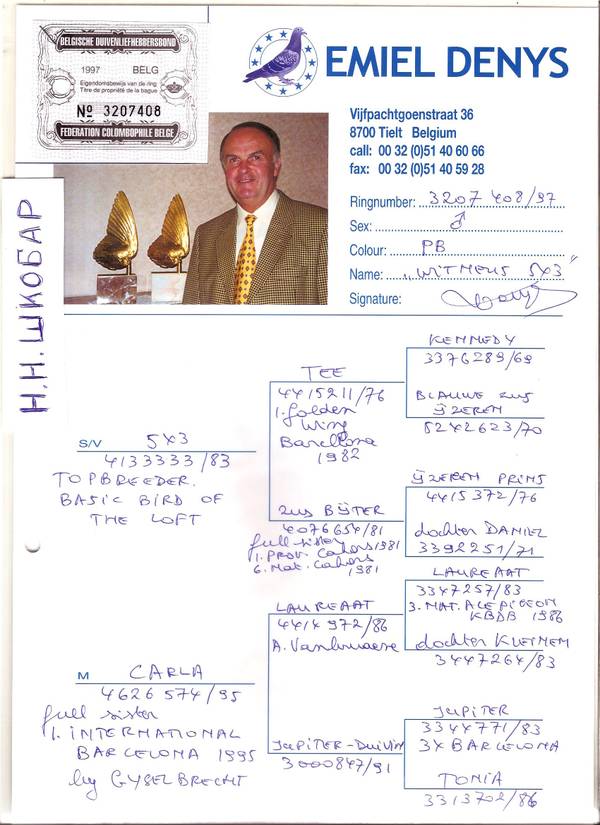 BELGISCHE DUIVENLIEFHEBBERSBOND
1997 BELG
Eigendomsbewijs van de ring
Titre de propriété de la bague
Nº 3207408
FEDERATION COLOMBOPHILE BELGE
EMIEL DENYS
Vijfpachtgoenstraat 36
8700 Tielt Belgium
call: 00 32 (0)51 40 60 66
fax: 00 32 (0)51 40 59 28
Ringnumber: 3207 408/97
Sex: ♂
Colour: PB
Name: „WITNEUS 5X3"
Signature:
Н.Н. ШКОБАР
S/V 5X3
4133333/83
TOPBREEDER.
BASIC BIRD OF
THE LOFT
TEE
4415211/76
1. Golden
Wing
Barcelona
1982
ZUS BIJTER
4076654/81
full sister
1. PROV. Cahors 1981
6. Nat. Cahors
1981
KENNEDY
3376289/69
BLAUWE ZUS
IJZEREN
8242623/70
IJZEREN PRINS
4415372/76
dochter DANIEL
3392251/71
M CARLA
4626574/95
full sister
1. INTERNATIONAL
BARCELONA 1995
by GYSELBRECHT
LAUREAAT
4414972/86
A. Vanhuaere
JUPITER-DUIVIN
3000847/91
LAUREAAT
3347257/83
3. NAT. ACE PIGEON
KBDB 1986
dochter KLEINEM
3447264/83
JUPITER
3344771/83
3X BARCELONA
TONIA
3313702/86